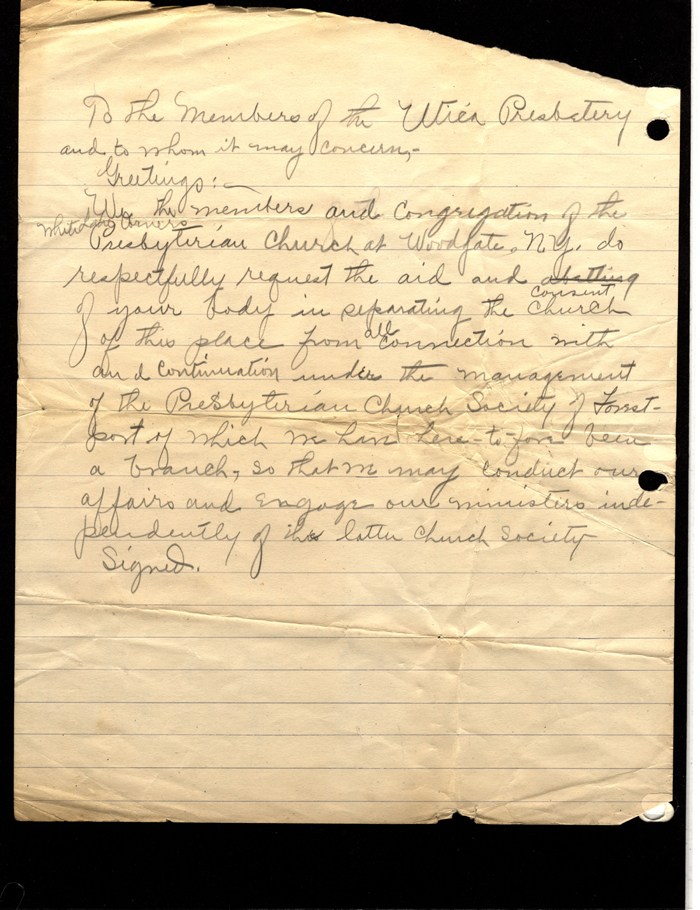 To the Members of the Utica Presbetery
and to whom it may concern,-
Greetings:-
We the members and Congregation of the
White Lake Corners
Presbyterian Church at Woodgate, N.Y. do
respectfully request the aid and abetting
consent
of your body in separating the Church
of this place from all connection with
and continuation under the management
of the Presbyterian Church Society of Forest-
port of which we have here-to-fore been
a branch, so that we may conduct our
affairs and engage our ministers inde-
pendently of this latter Church Society
Signed.